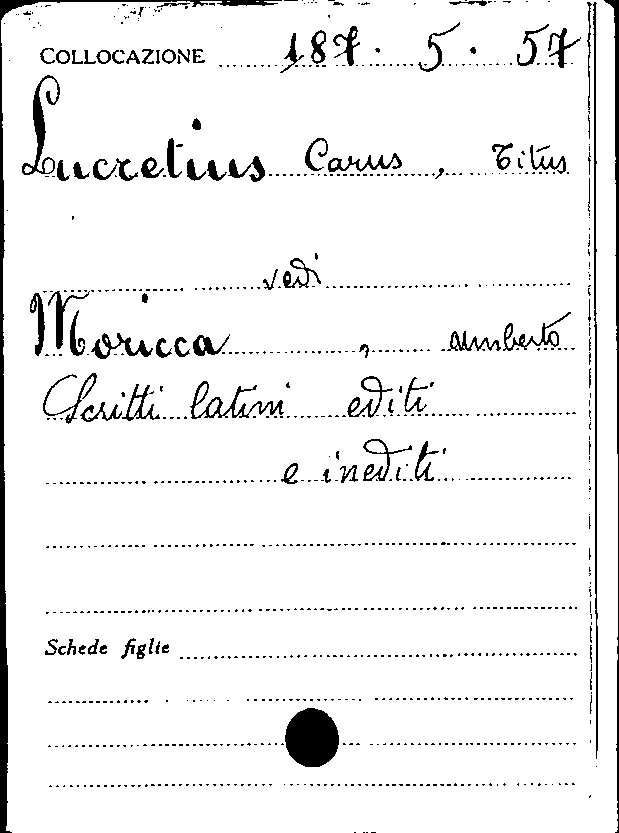 COLLOCAZIONE 187. 5. 57
Lucretius Carus, Titus
vedi
Moricca, Umberto
Scritti latini editi
e inediti
Schede figlie